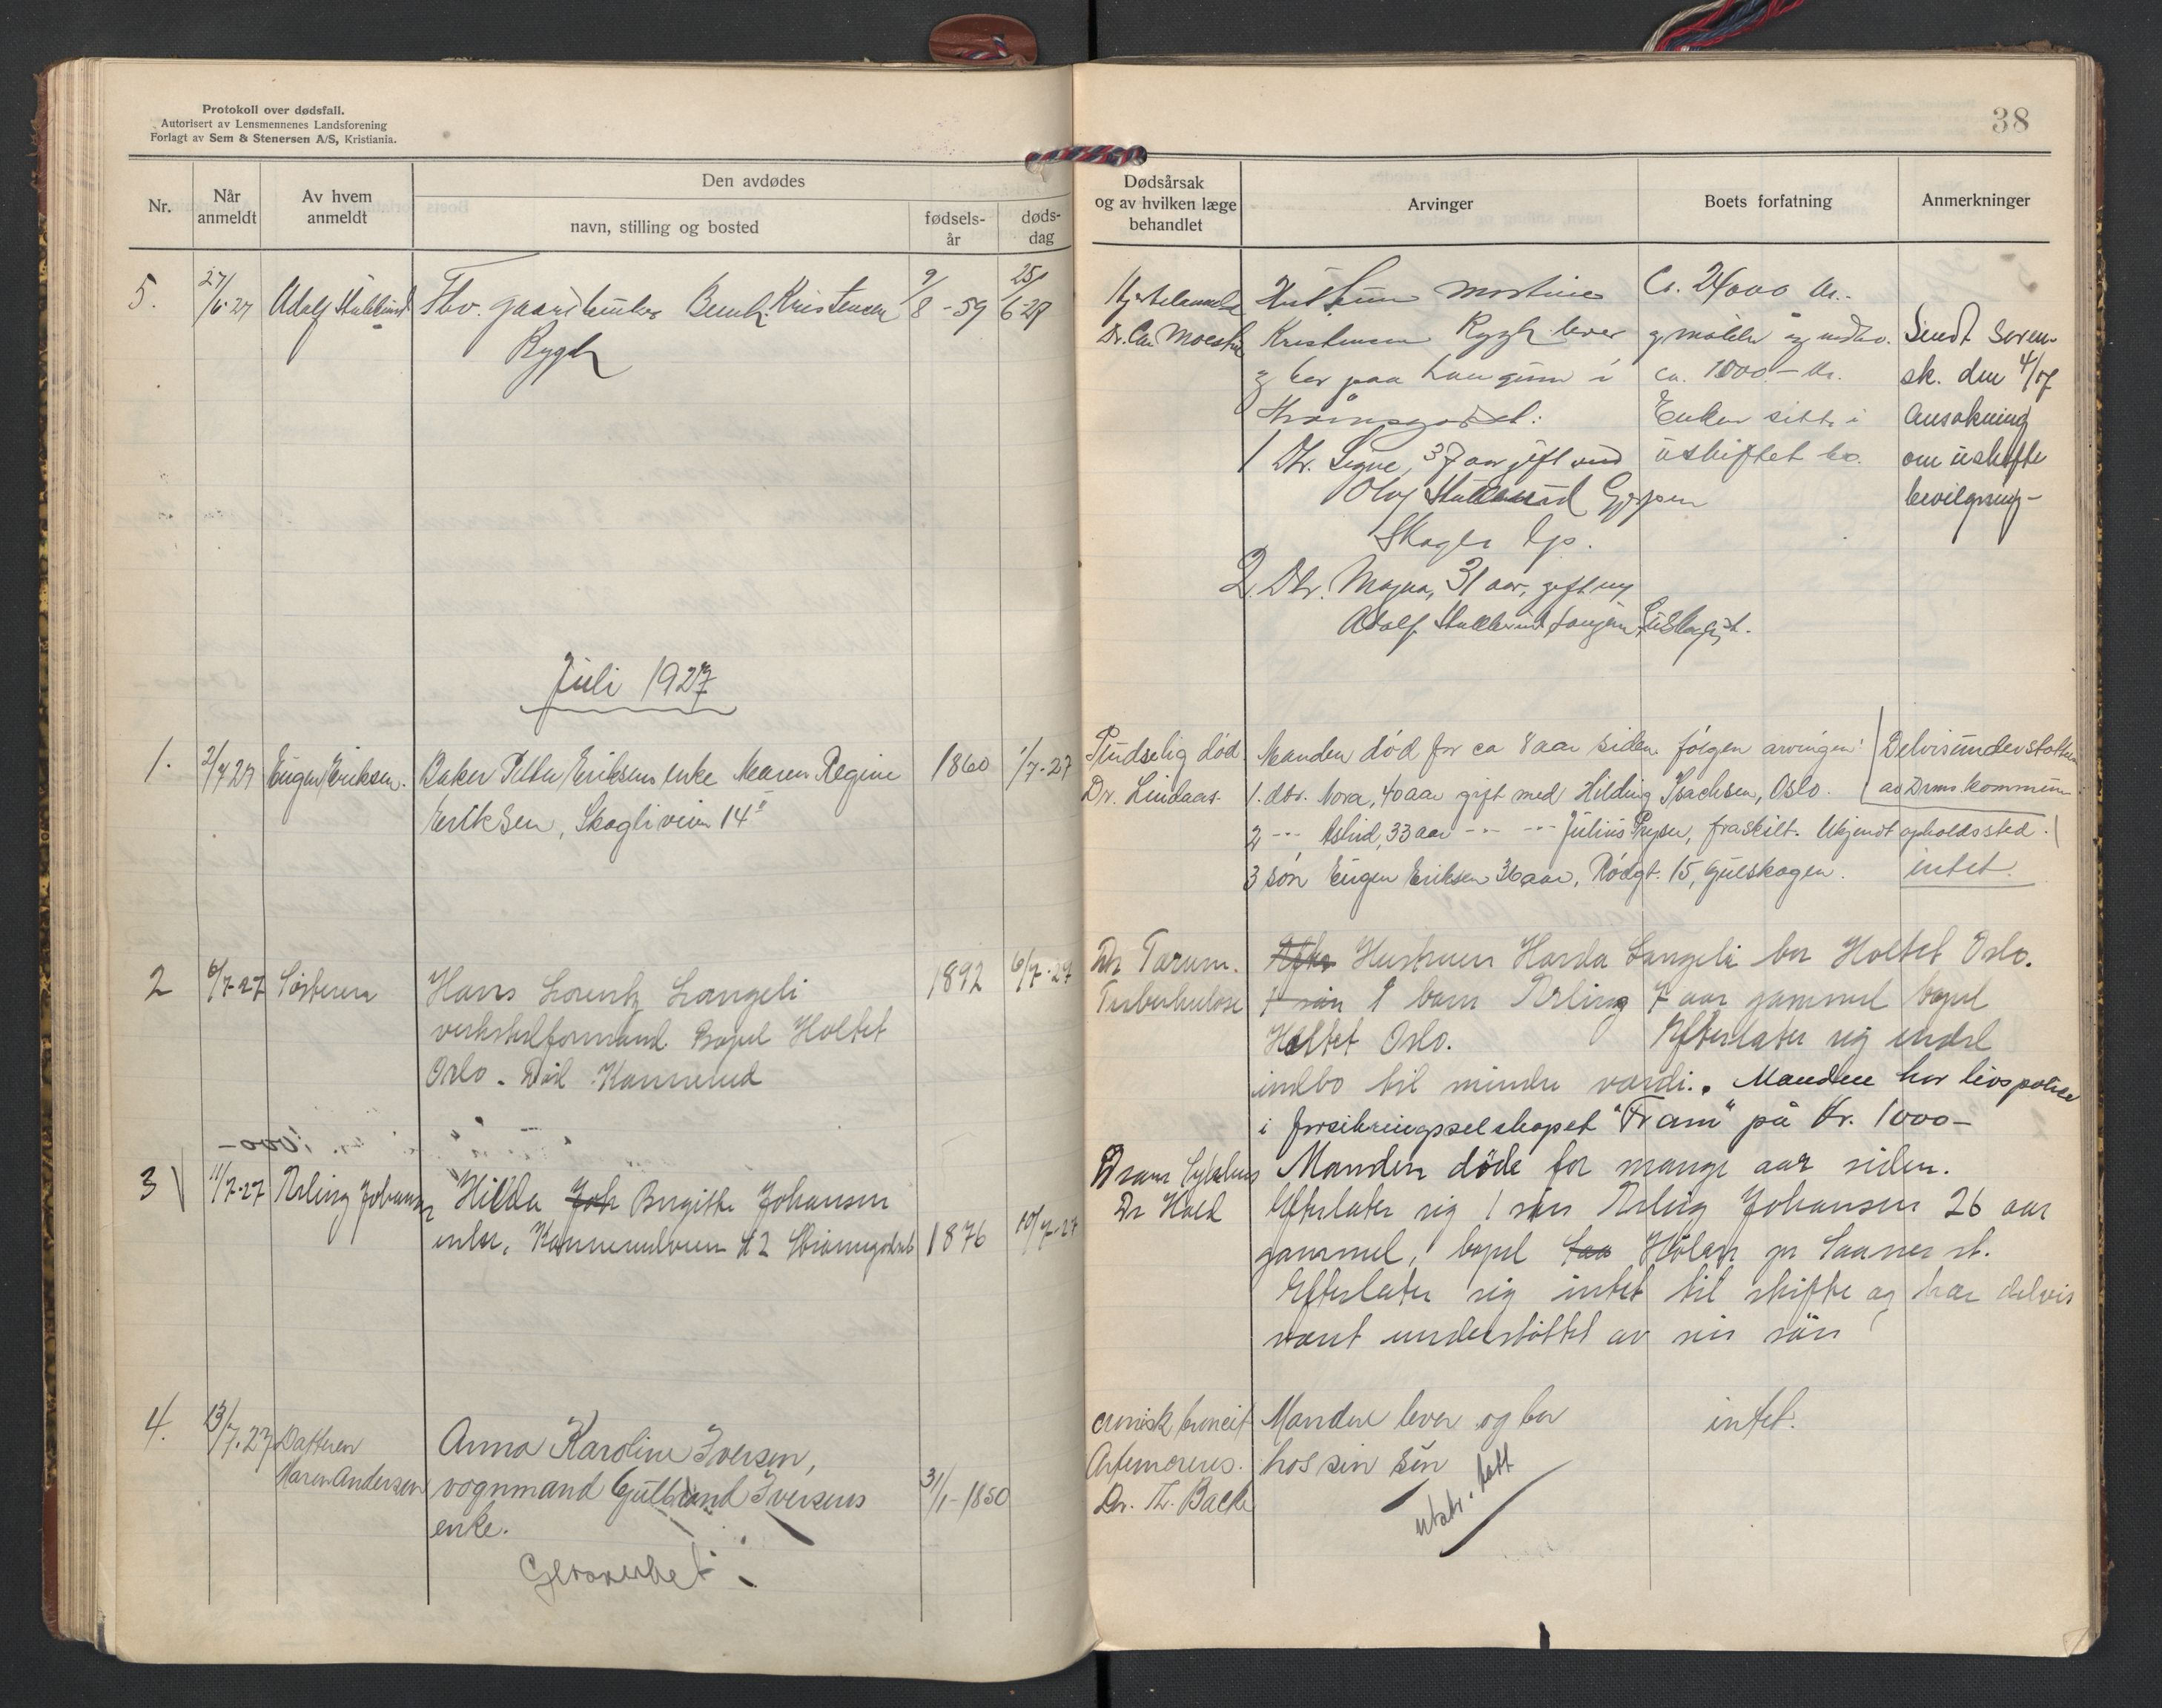 Protokoll over dødsfall.
Autorisert av Lensmennenes Landsforening
Forlagt av Sem & Stenersen A/S, Kristiania.
Nr.
Når anmeldt
Av hvem anmeldt
Den avdødes
navn, stilling og bosted
fødsels-år
døds-dag
5. 27/6-27 Adolf Fhv. gaardbruker Kristensen 9/8-59 25/6-27
Rygh
Juli 1927
1. 2/7 27 Eugen Eriksen. Baker Petter Eriksens enke Maren Regine 1860 1/7-27
Eriksen, Skogliveien 14
2 6/7-27 Søsteren Hans Lorentz Langeli 1892 6/7-27
verkstedformand. Bopel Holtet
Oslo. Død Konnerud
3 11/7-27 Erling Johansen Hilda Joh Birgitte Johansen
enke, Konnerudveien 42 Strømsgodset 1876 10/7-27
4. 13/7.27 Datteren Anna Karoline Iversen,
Maren Andersen vognmand Gulbrand Iversens 31/1-1850
enke.
38
Dødsårsak og av hvilken læge behandlet
Arvinger
Boets forfatning
Anmerkninger
Hjertelammelse Martine Ca. 24000 kr.
Dr. Kristensen Rygh lever Sendt Soren-
og bor paa i ca. 1000.- kr. sk. den 4/7
Strømsgodset: Enken sitter i Ansøkning
1 Dtr. Signe, 37 aar gift med uskiftet bo. om uskifte
Olaf Stubberud bevilgning-
Skoger
2. Dtr. Magna, 31 aar, gift m/
Adolf Stubberud
Pludselig død Manden død for ca 8 aar siden følgen arvinger: Delvis understøttet
Dr. Lindaas. 1. dtr. Nora, 40 aar gift med Hilding Isachsen, Oslo. av Drms kommune
2 -"- Astrid, 33 aar -"- -"- Julius Pryser, fraskilt. Ukjendt opholdssted.
3 søn Eugen Eriksen 36 aar, Rødgt. 15, Gulskogen. intet.
Dr Tuberkulose Hustruen Harda Langeli bor Holtet Oslo.
1 søn 1 barn Erling 7 aar gammel bopel
Holtet Oslo. Efterlater sig endel
indbo til mindre værdi. Manden har livspolise
i forsikringsselskapet "Fram" på kr. 1000-
Drams Sykehus Manden døde for mange aar siden.
Dr Efterlater sig 1 søn Erling Johansen 26 aar
gammel, bopel Hølen pr Saaner st.
Efterlater sig intet til skifte og har delvis
været understøttet av sin søn
cronisk Manden lever og bor intet.
hos sin søn
Dr. Th. Backe